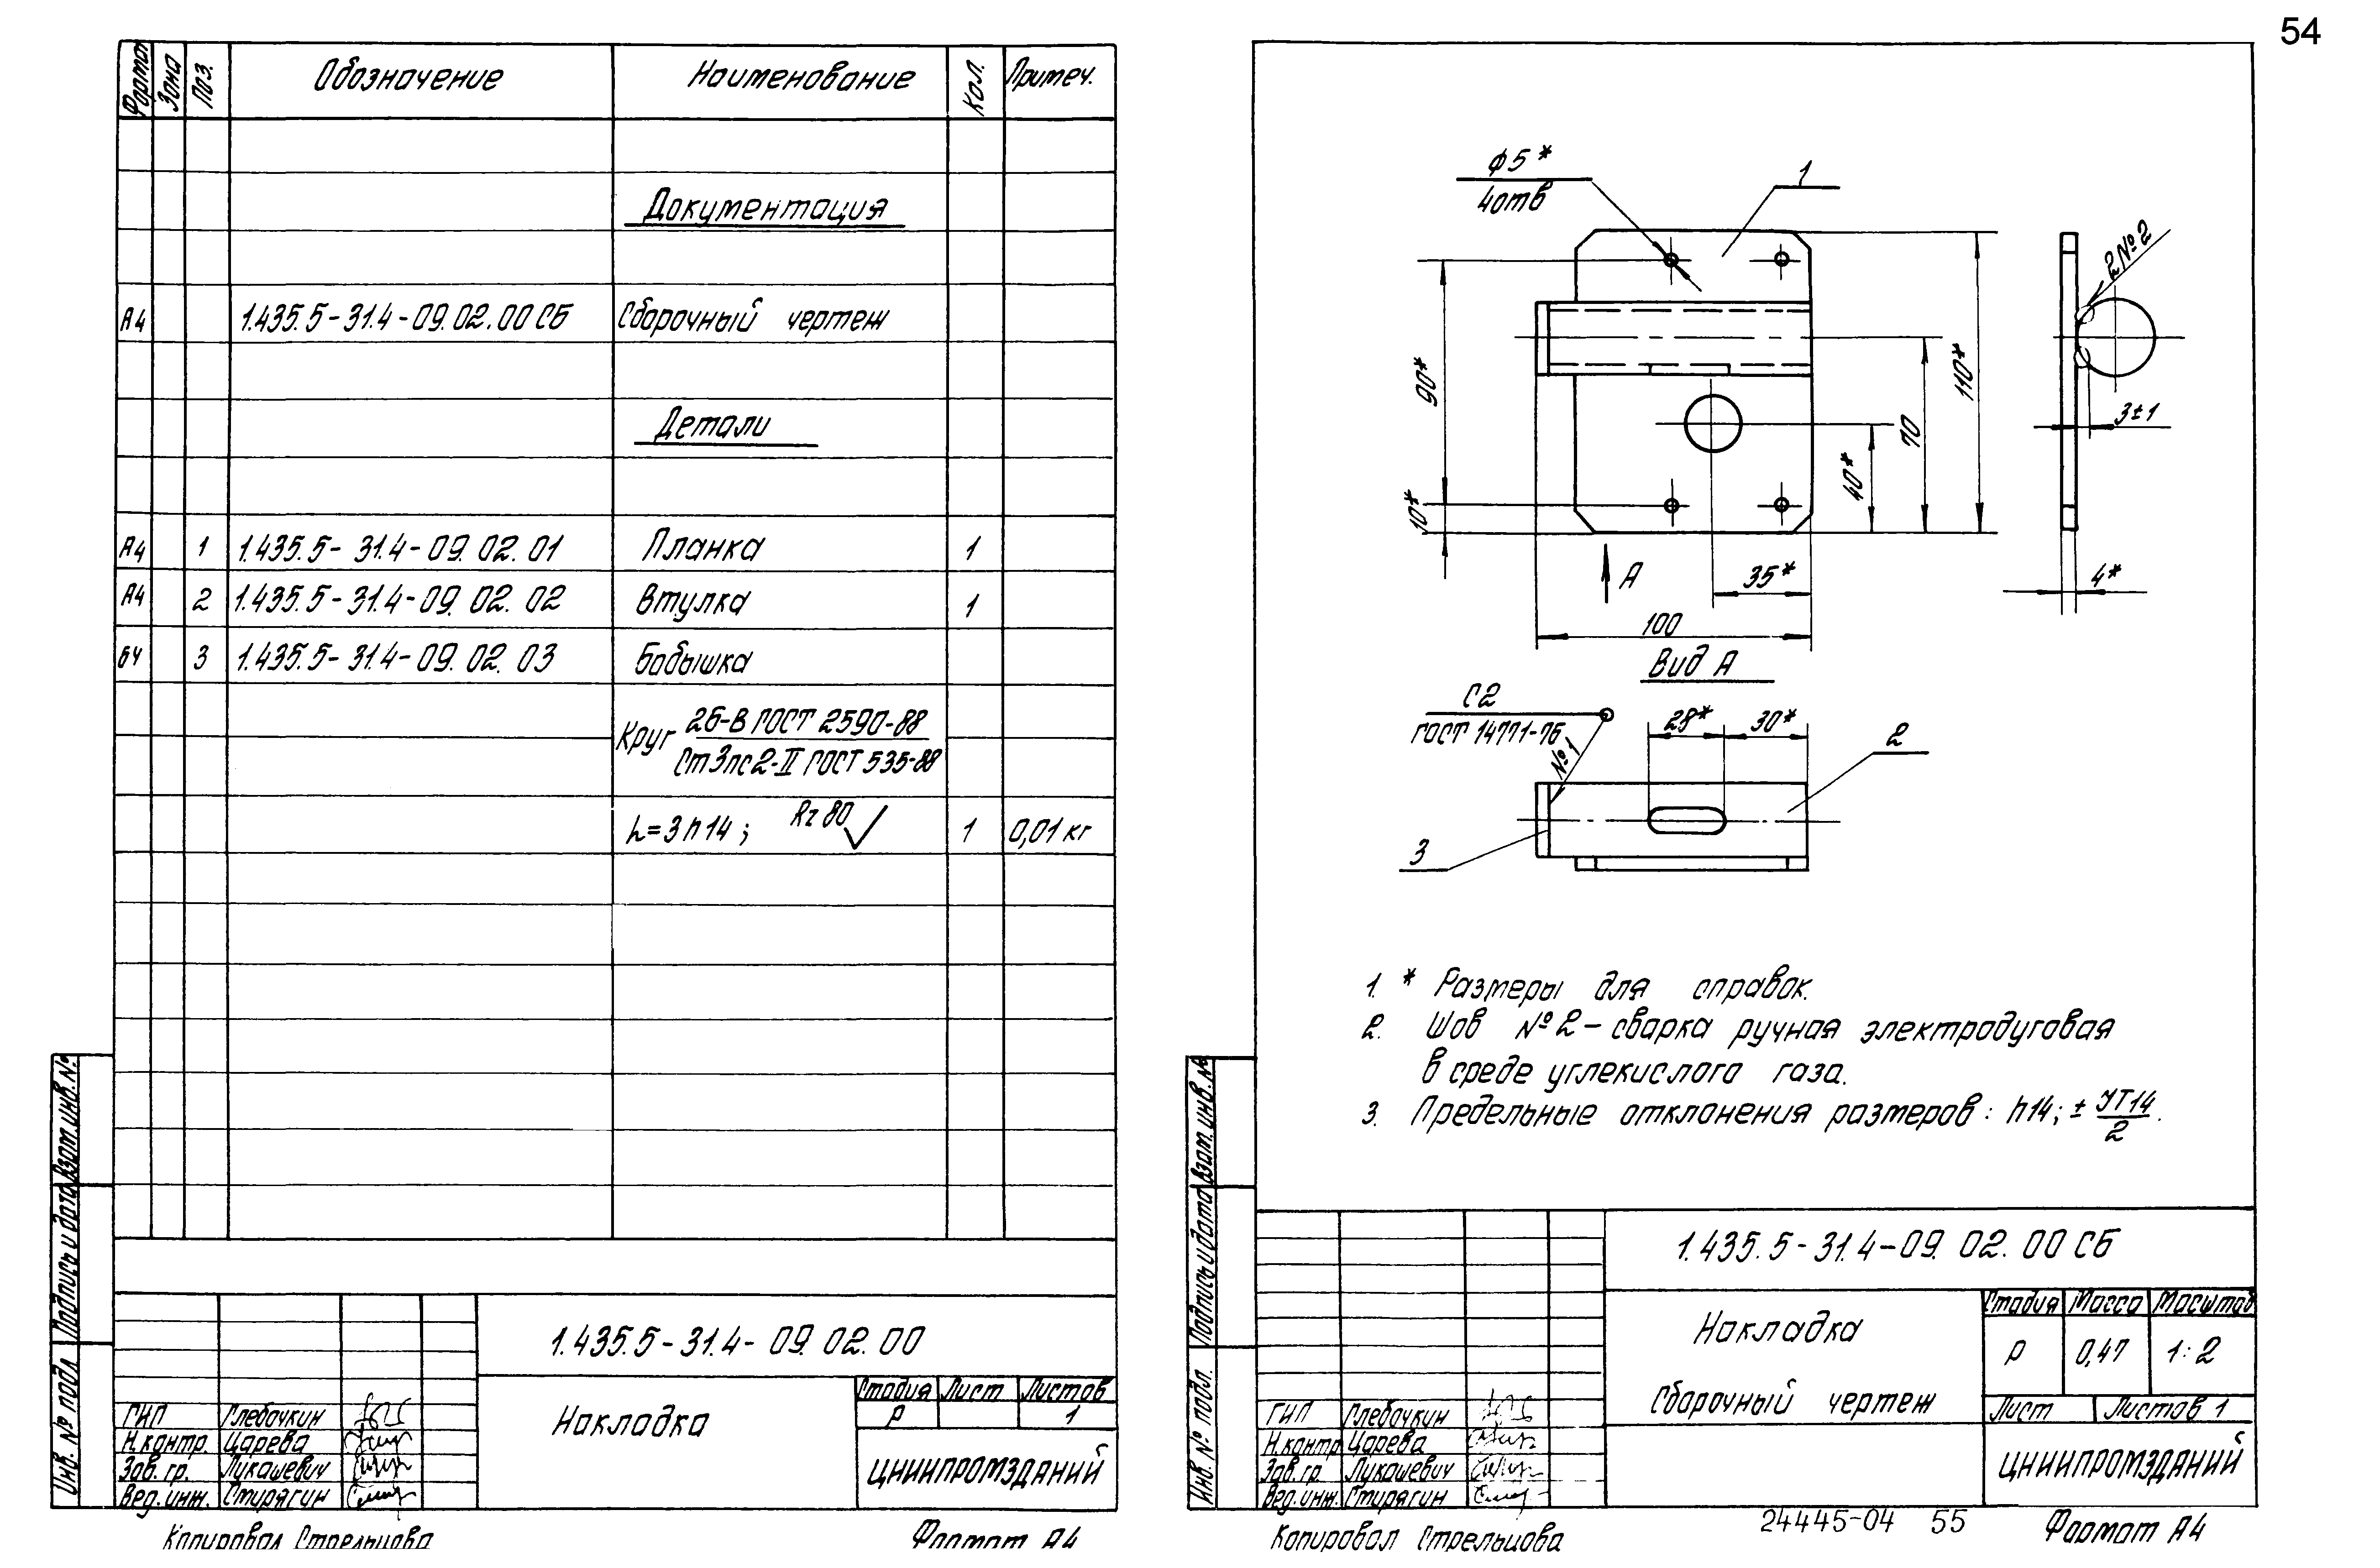 54
Формат Зона Поз. Обозначение Наименование Кол. Примеч.
Документация
А4 1.435.5-31.4-09.02.00 СБ Сборочный чертеж
Детали
А4 1 1.435.5-31.4-09.02.01 Планка 1
А4 2 1.435.5-31.4-09.02.02 Втулка 1
БЧ 3 1.435.5-31.4-09.02.03 Бобышка
Круг 26-В ГОСТ 2590-88
Ст3пс2-II ГОСТ 535-88
h=3h14; Rz80 1 0,01 кг
Взам.инв.№
Подпись и дата
Инв. № подл
1.435.5-31.4-09.02.00
Накладка
Стадия Лист Листов
Р 1
ГИП Глебочкин
Н.контр. Царева
Зав. гр. Лукашевич
Вед.инж. Стирягин
ЦНИИПРОМЗДАНИЙ
Копировал Стрельцова Формат А4
ф5*
4отв
1
2№2
90*
10*
40*
70
110*
3±1
4*
35*
100
А
Вид А
С2
ГОСТ 14771-76
№1
28* 30*
2
3
1. * Размеры для справок.
2. Шов №2-сварка ручная электродуговая
в среде углекислого газа.
3. Предельные отклонения размеров: h14; ± УТ14
2.
Взам.инв.№
Подпись и дата
Инв. № подл.
1.435.5-31.4-09.02.00 СБ
Накладка
Сборочный чертеж
Стадия Масса Масштаб
Р 0,47 1:2
Лист Листов 1
ГИП Глебочкин
Н.контр Царева
Зав.гр. Лукашевич
Вед.инж. Стирягин
ЦНИИПРОМЗДАНИЙ
24445-04 55
Копировал Стрельцова Формат А4